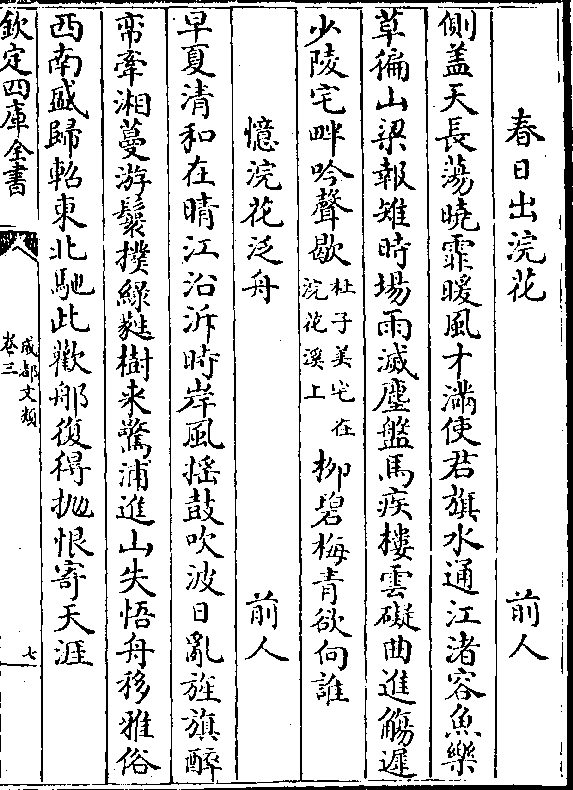 春日出浣花　前人
側盖天長蕩曉霏暖風才滿使君旗水通江渚容魚樂
草徧山梁報雉時場雨滅塵盤馬疾樓雲礙曲進觴遲
少陵宅畔吟聲歇杜子美宅在浣花溪上柳碧梅青欲向誰
憶浣花泛舟　前人
早夏清和在晴江沿泝時岸風揺鼓吹波日亂旌旗醉
帟牽湘蔓游鬟撲緑蕤樹来驚浦進山失悟舟移雅俗
西南盛歸軺東北馳此歡那復得抛恨寄天涯
欽定四庫全書
成都文類
卷三
七